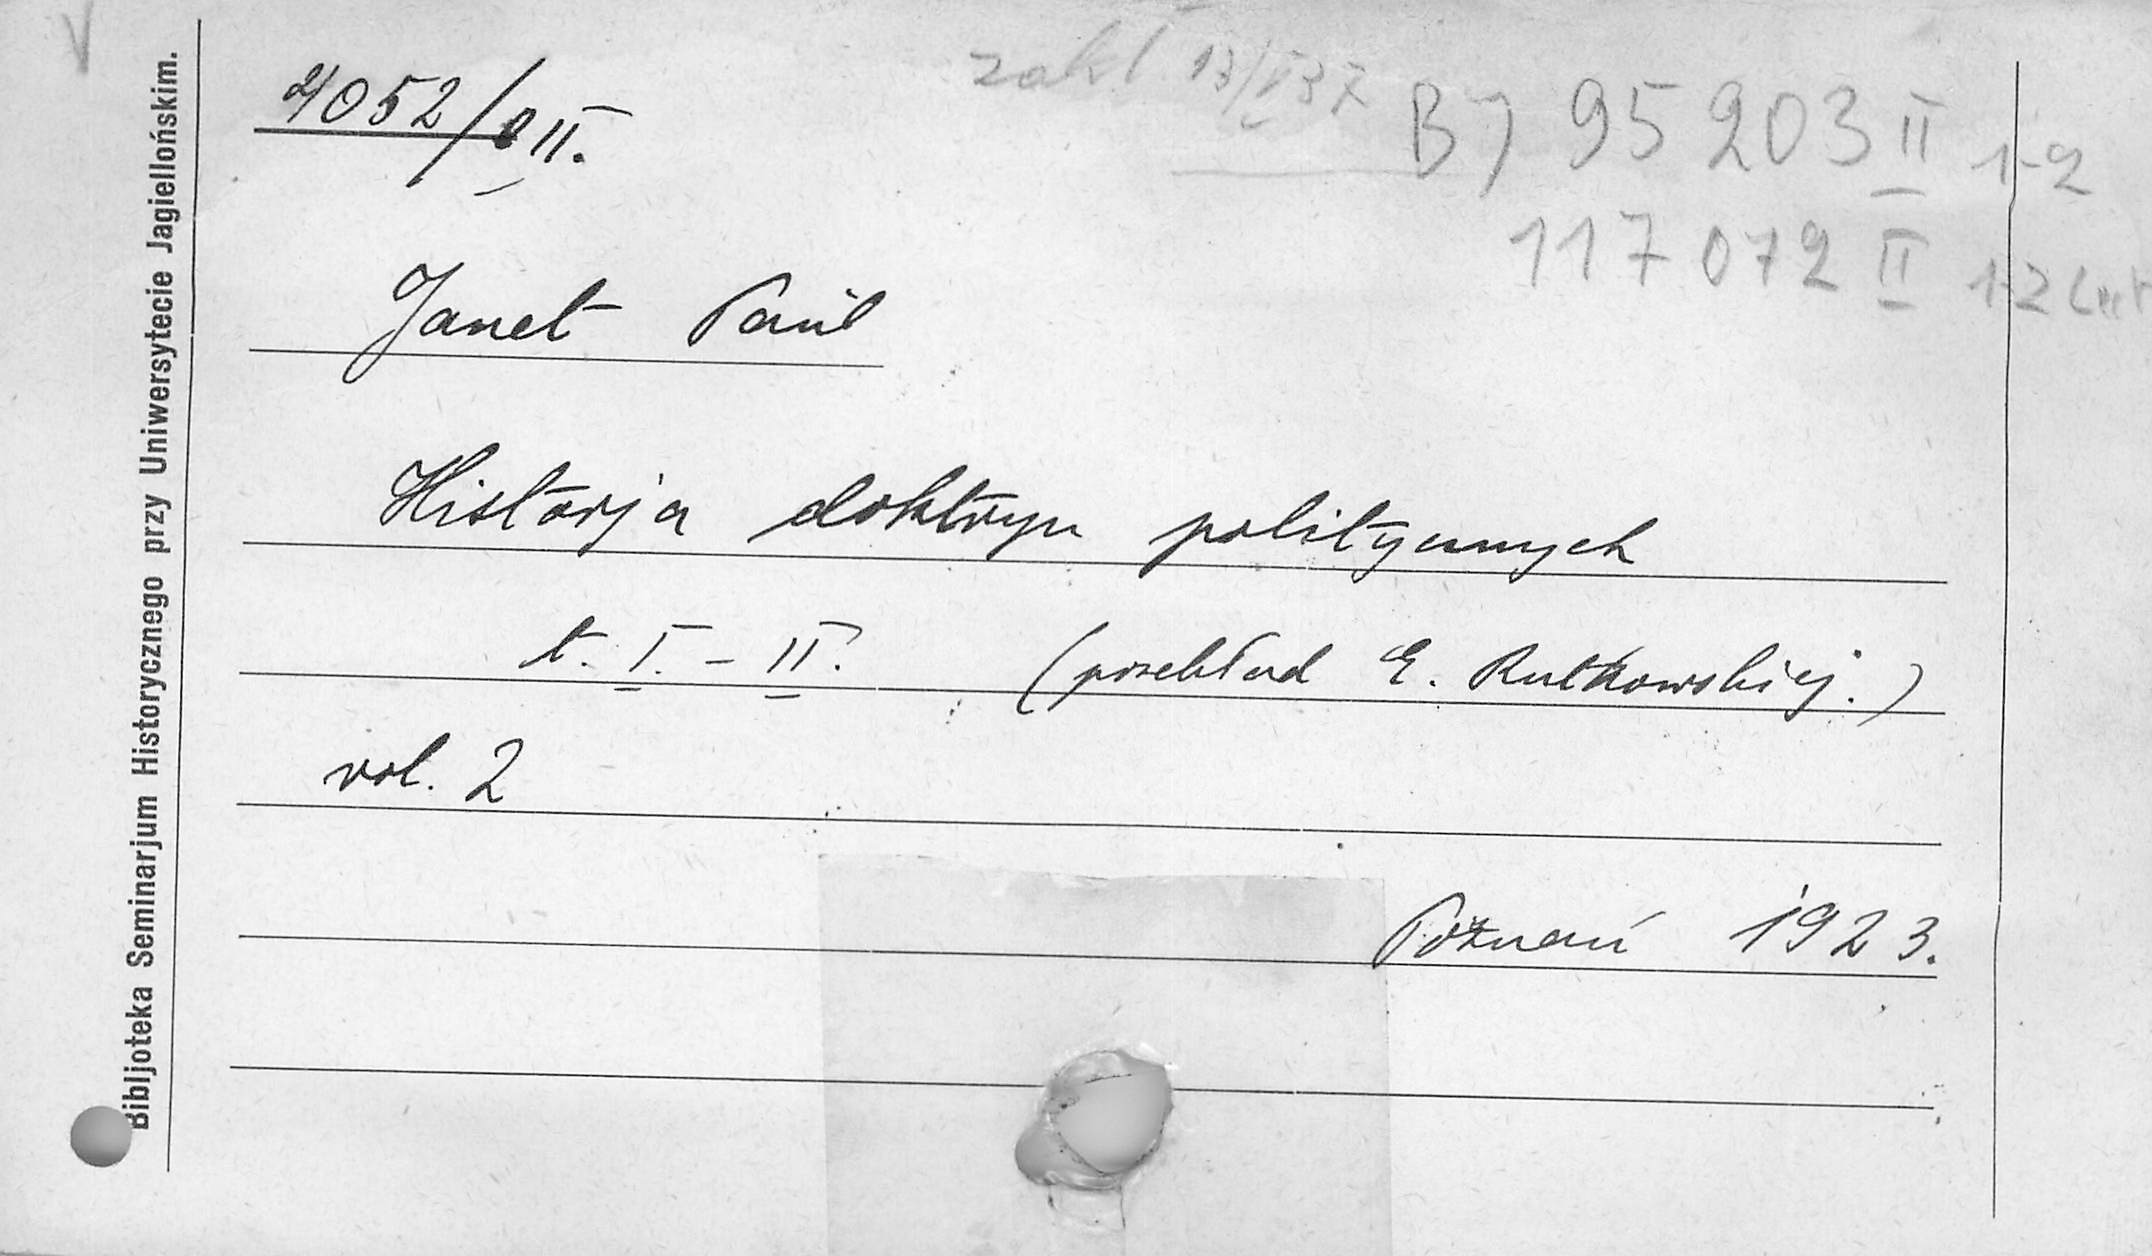 V
zakł. 13/V 37
4052/II.
BJ 95 203 II 1-2
117 072 II 1-2
Janet Paul
Historja doktryn politycznych
t. I. - II. (przekład E. Rutkowskiej.)
vol. 2
Poznań 1923.
Bibljoteka Seminarjum Historycznego przy Uniwersytecie Jagiellońskim.